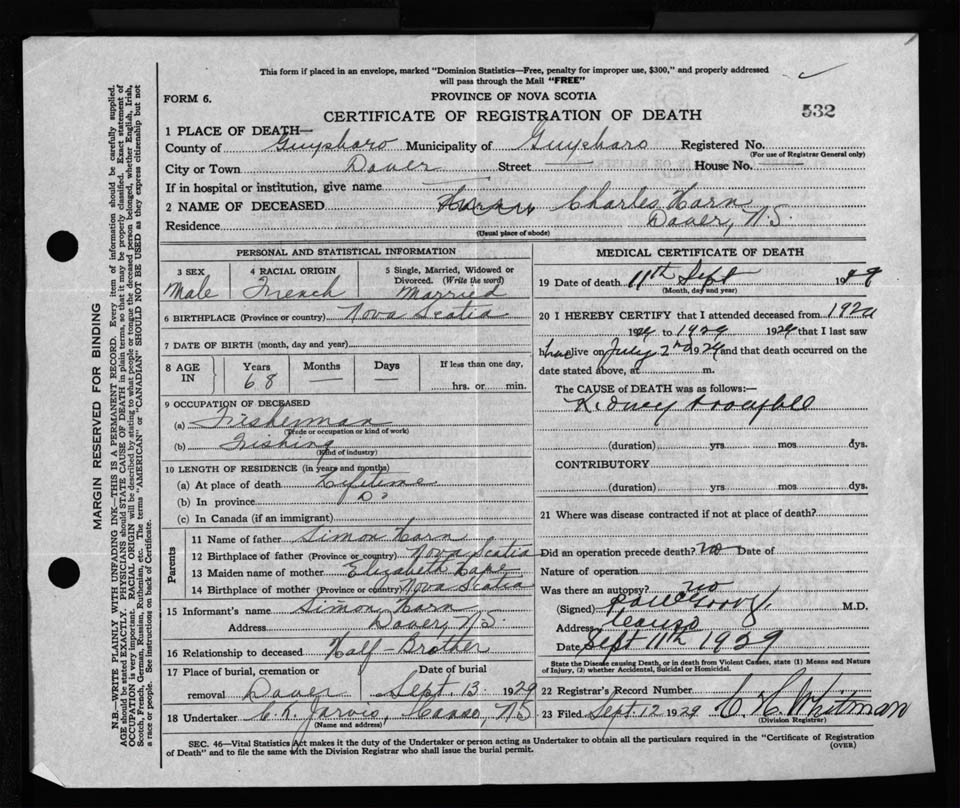 This form if placed in an envelope, marked "Dominion Statistics—Free, penalty for improper use, $300," and properly addressed
will pass through the Mail "FREE"
FORM 6.
PROVINCE OF NOVA SCOTIA
532
CERTIFICATE OF REGISTRATION OF DEATH
1 PLACE OF DEATH—
County of Guysboro Municipality of Guysboro Registered No.
(For use of Registrar General only)
City or Town Dover Street — House No.
If in hospital or institution, give name —
2 NAME OF DECEASED Charles Horn
Residence Dover, N.S.
(Usual place of abode)
PERSONAL AND STATISTICAL INFORMATION
3 SEX Male
4 RACIAL ORIGIN French
5 Single, Married, Widowed or Divorced. (Write the word) Married
6 BIRTHPLACE (Province or country) Nova Scotia
7 DATE OF BIRTH (month, day and year)
8 AGE IN Years 68 Months — Days — If less than one day, hrs. or min.
9 OCCUPATION OF DECEASED
(a) Fisherman
(Trade or occupation or kind of work)
(b) Fishing
(Kind of industry)
10 LENGTH OF RESIDENCE (in years and months)
(a) At place of death Lifetime
(b) In province Do
(c) In Canada (if an immigrant)
Parents
11 Name of father Simon Horn
12 Birthplace of father (Province or country) Nova Scotia
13 Maiden name of mother Elizabeth
14 Birthplace of mother (Province or country) Nova Scotia
15 Informant's name Simon Horn
Address Dover, N.S.
16 Relationship to deceased Half-Brother
17 Place of burial, cremation or removal Dover Date of burial Sept. 13 1929
18 Undertaker C. K. Jarvis, Canso, NS
(Name and address)
MEDICAL CERTIFICATE OF DEATH
19 Date of death 11th Sept 1929
(Month, day and year)
20 I HEREBY CERTIFY that I attended deceased from
1929 to 1929 1929 that I last saw
h alive on July 2nd 1929 and that death occurred on the
date stated above, at m.
The CAUSE OF DEATH was as follows:—
Kidney
(duration) yrs mos dys.
CONTRIBUTORY
(duration) yrs. mos. dys.
21 Where was disease contracted if not at place of death?
Did an operation precede death? no Date of
Nature of operation
Was there an autopsy? no
(Signed) M.D.
Address Canso
Date Sept 11th 1929
State the Disease causing Death, or in death from Violent Causes, state (1) Means and Nature
of Injury, (2) whether Accidental, Suicidal or Homicidal.
22 Registrar's Record Number
23 Filed Sept. 12 1929 C H Whitman
(Division Registrar)
SEC. 46—Vital Statistics Act makes it the duty of the Undertaker or person acting as Undertaker to obtain all the particulars required in the "Certificate of Registration
of Death" and to file the same with the Division Registrar who shall issue the burial permit.
(OVER)
MARGIN RESERVED FOR BINDING
N.B.—WRITE PLAINLY WITH UNFADING INK—THIS IS A PERMANENT RECORD. Every item of information should be carefully supplied.
AGE should be stated EXACTLY. PHYSICIANS should STATE CAUSE OF DEATH in plain terms, so that it may be properly classified. Exact statement of
OCCUPATION is very important. RACIAL ORIGIN will be described by stating to what people or tongue the deceased person belonged, whether English, Irish,
Scotch, French, German, Russian, Ruthenian, etc. The terms "AMERICAN" or "CANADIAN" SHOULD NOT BE USED as they express citizenship but not
a race or people. See instructions on back of Certificate.